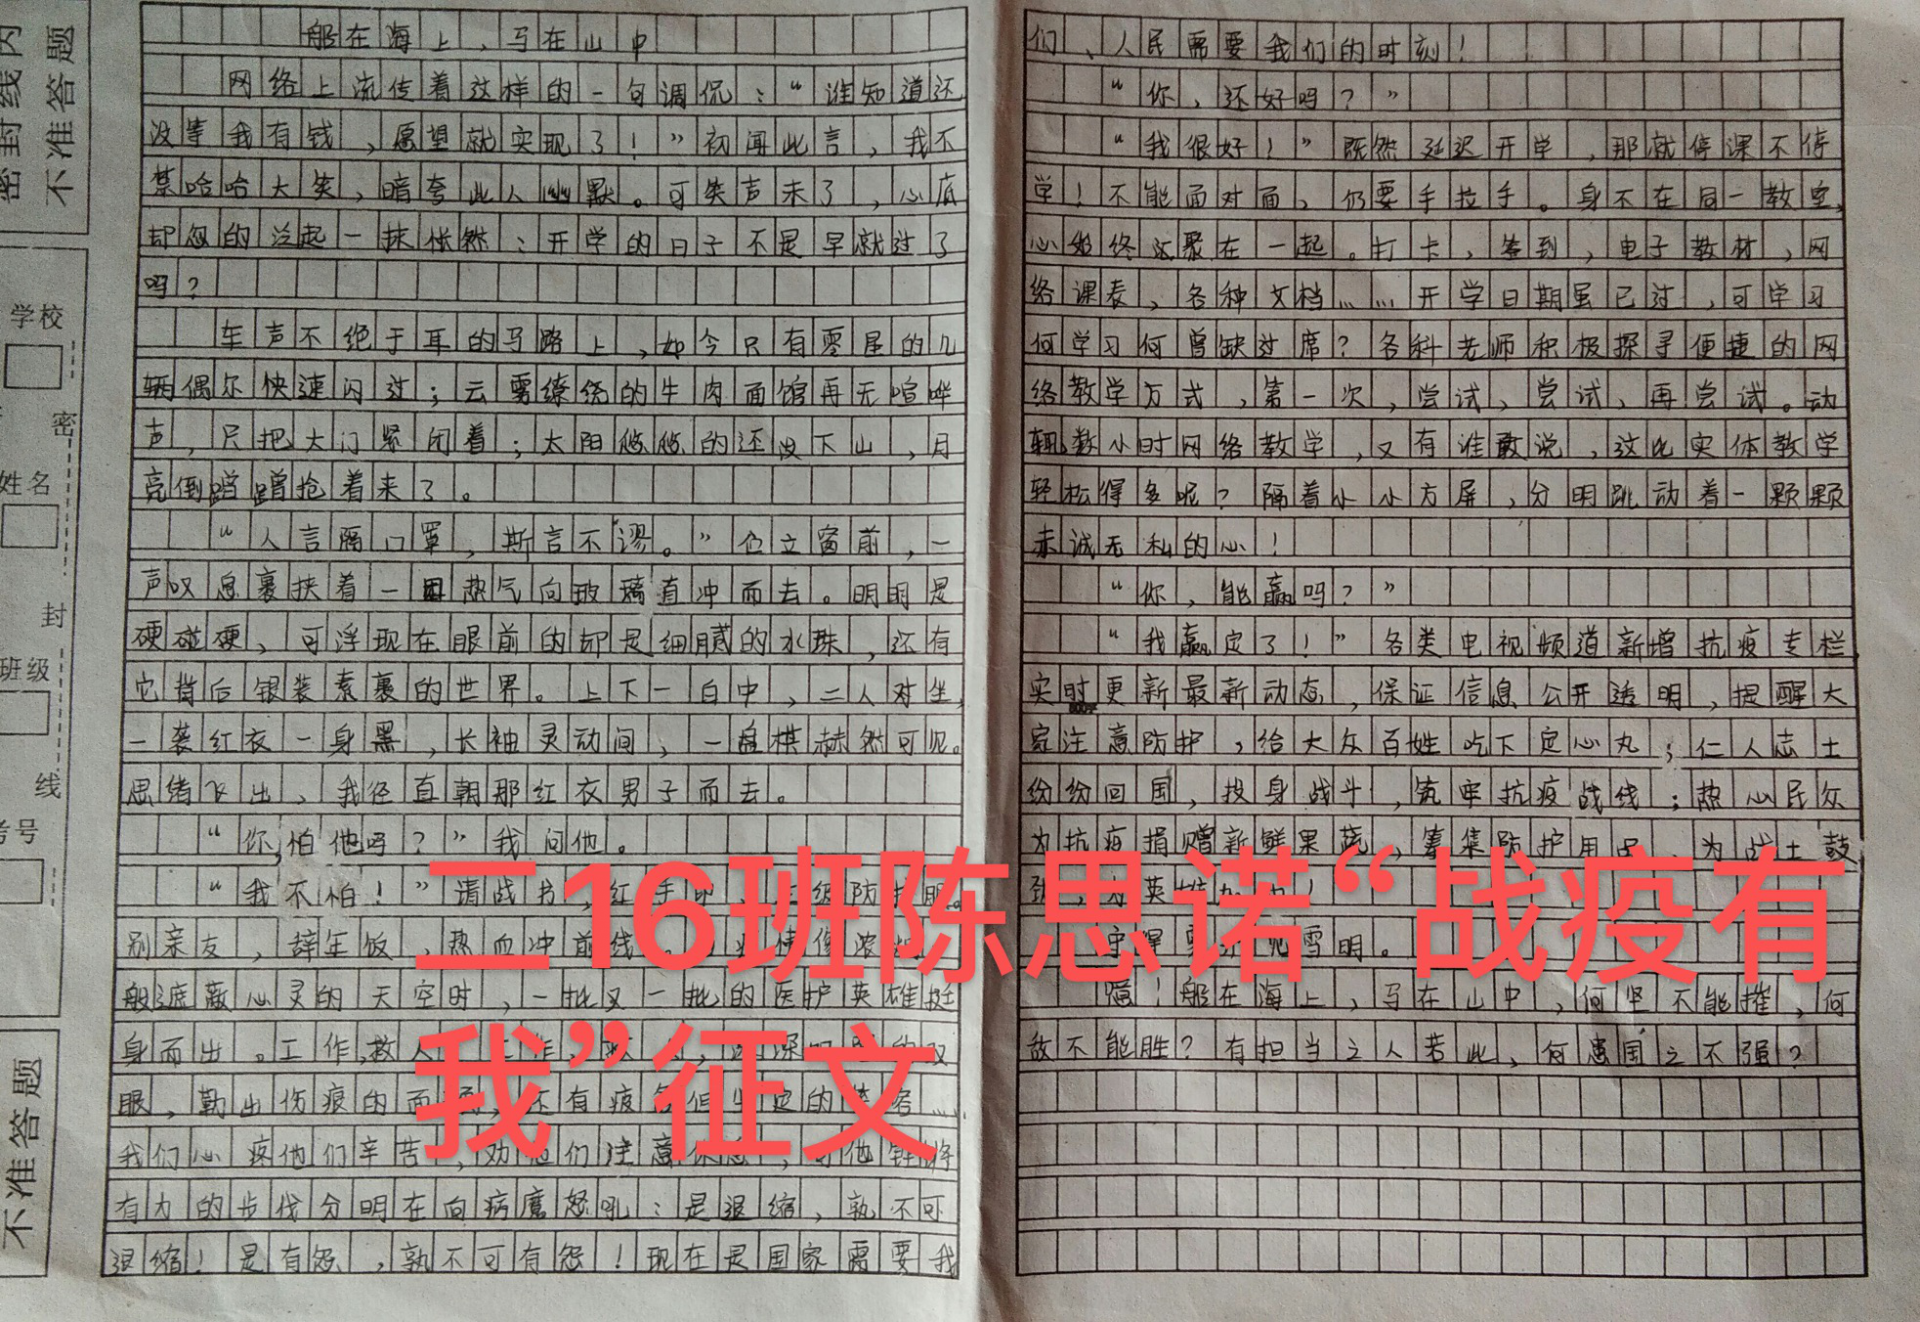 船在海上，马在山中
网络上流传着这样的一句调侃：“谁知道还
没等我有钱，愿望就实现了！”初闻此言，我不
禁哈哈大笑，暗夸此人幽默。可笑声未了，心底
却忽的泛起一抹怅然：开学的日子不是早就过了
吗？
车声不绝于耳的马路上，如今只有零星的几
辆偶尔快速闪过；云雾缭绕的牛肉面馆再无喧哗
声，只把大门紧闭着；太阳悠悠的还没下山，月
亮倒蹭蹭抢着来了。
“人言隔口罩，斯言不谬。”伫立窗前，一
声叹息裹挟着一团热气向玻璃直冲而去。明明是
硬碰硬，可浮现在眼前的却是细腻的水珠，还有
它背后银装素裹的世界。上下一白中，二人对坐，
一袭红衣一身黑，长袖灵动间，一盘棋赫然可见。
思绪飞出，我径直朝那红衣男子而去。
“你，怕他吗？”我问他。
“我不怕！”请战书，红手印，防护服。
别亲友，辞年饭，热血冲前线。
般遮蔽心灵的天空时，一批又一批的医护英雄挺
身而出。工作，救人，双
眼，勒出伤痕的面，还有疲定的
我们心疼他们辛苦，劝他们注意，可他
有力的步伐分明在向病魔怒吼：是退缩，孰不可
退缩！是有怨，孰不可有怨！现在是国家需要我
们、人民需要我们的时刻！
“你，还好吗？”
“我很好！”既然延迟开学，那就停课不停
学！不能面对面，仍要手拉手。身不在同一教室，
心始终汇聚在一起。打卡，签到，电子教材，网
络课表，各种文档……开学日期虽已过，可学习
何学习何曾缺过席？各科老师积极探寻便捷的网
络教学方式，第一次，尝试，尝试，再尝试。动
辄数小时网络教学，又有谁敢说，这比实体教学
轻松得多呢？隔着小小方屏，分明跳动着一颗颗
赤诚无私的心！
“你，能赢吗？”
“我赢定了！”各类电视频道新增抗疫专栏
实时更新最新动态，保证信息公开透明，提醒大
家注意防护，给大众百姓吃下定心丸；仁人志士
纷纷回国，投身战斗，筑牢抗疫战线；热心民众
为抗疫捐赠新鲜果蔬，筹集防护用品，为战士鼓
劲，为英雄加力！
守得雪明。
嘻！船在海上，马在山中，何坚不能摧，何
敌不能胜？有担当之人若此，何患国之不强？
二16班陈思诺“战疫有
我”征文
密封线内
不准答题
学校
密
姓名
封
班级
线
考号
不准答题